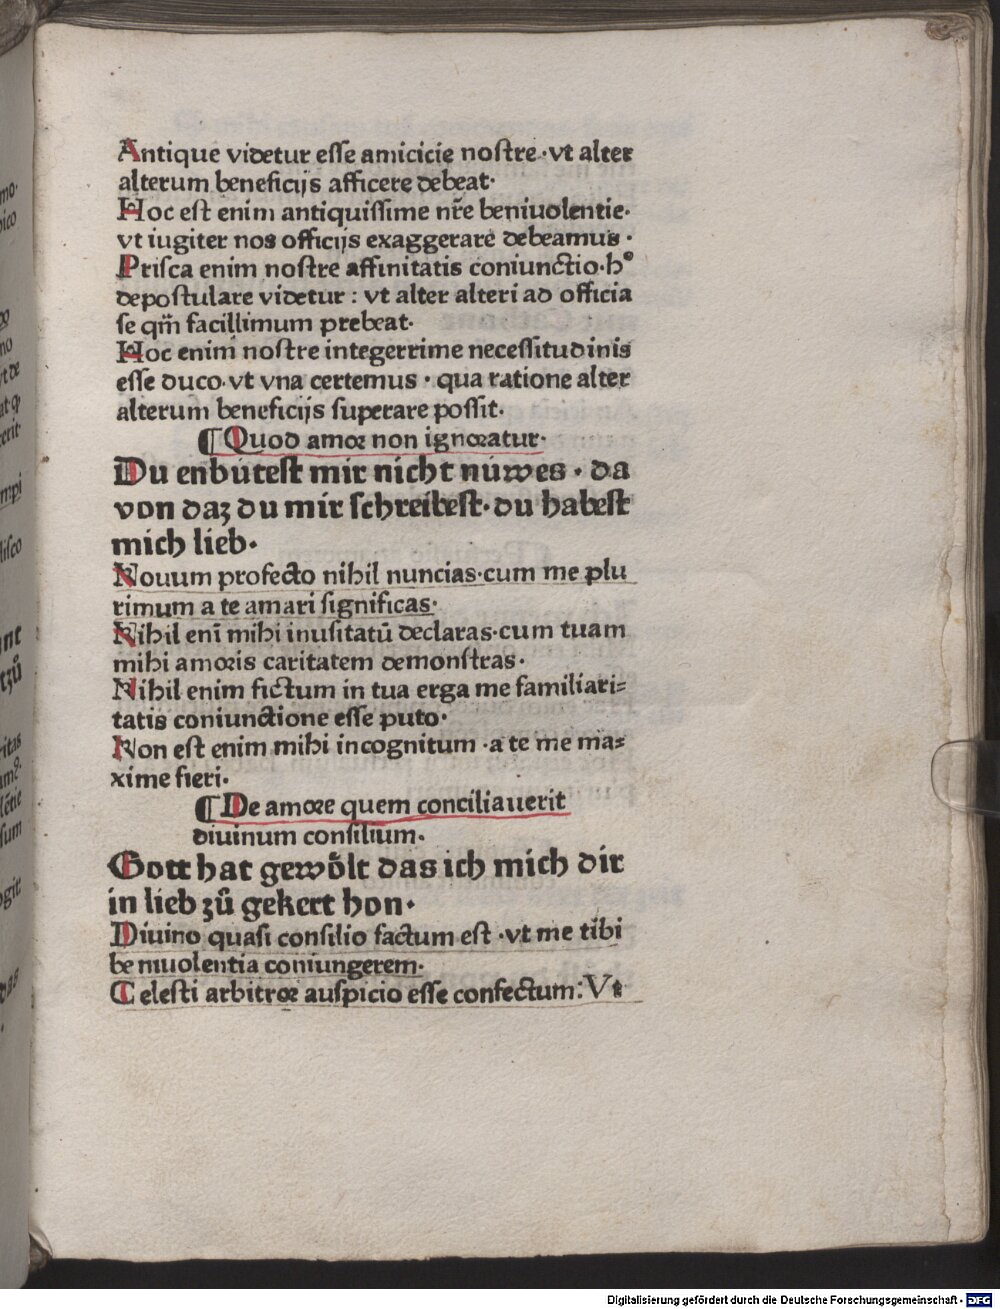 Antique videtur esse amicicie nostre · vt alter
alterum beneficijs afficere debeat·
Hoc est enim antiquissime nr̃e beniuolentie·
vt iugiter nos officijs exaggerare debeamus ·
Prisca enim nostre affinitatis coniunctio·h°
depostulare videtur : vt alter alteri ad officia
se qm̃ facillimum prebeat·
Hoc enim nostre integerrime necessitudinis
esse duco·vt vna certemus · qua ratione alter
alterum beneficijs superare possit·
¶ Quod amor non ignoratur·
Du enbütest mir nicht nüwes · da
von daz du mir schreibest·du habest
mich lieb·
Novum profecto nihil nuncias·cum me plu
rimum a te amari significas·
Nihil eni̅ mihi inusitatū declaras·cum tuam
mihi amoris caritatem demonstras·
Nihil enim fictum in tua erga me familiari=
tatis coniunctione esse puto·
Non est enim mihi incognitum ·a te me ma=
xime fieri·
¶ De amore quem conciliauerit
diuinum consilium·
Gott hat gewoͤlt das ich mich dir
in lieb zuͦ gekert hon·
Diuino quasi consilio factum est ·vt me tibi
beniuolentia coniungerem·
Celesti arbitror auspicio esse confectum: Vt
mo·
ico
no
vt de
erit
mpi
lisco
nt
tzuͦ
itas
sum
ogit
vas
Digitalisierung gefördert durch die Deutsche Forschungsgemeinschaft - DFG